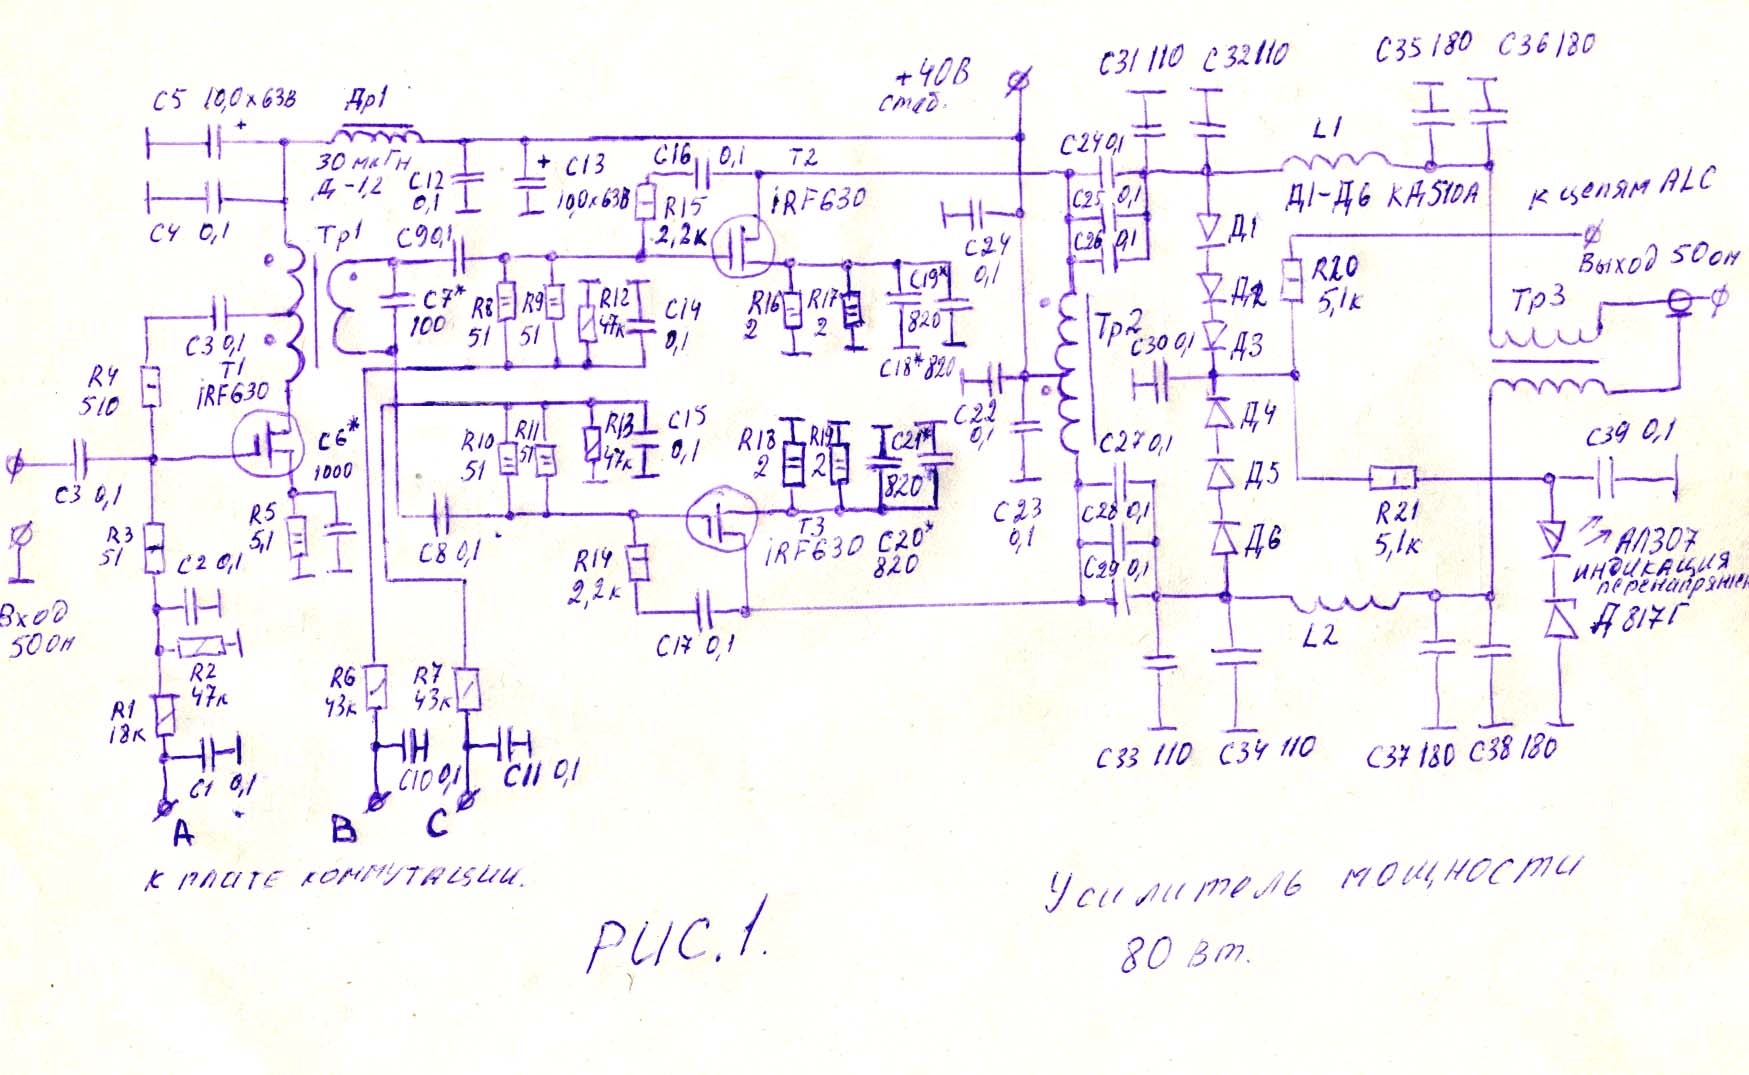 C5 10,0×63В
Др1
+
30 мкГн
Д-1,2
C4 0,1
Тр1
C12
0,1
+ C13
10,0×63В
C16 0,1
T2
iRF630
R15
2,2к
+40В
стаб.
C31 110
C32 110
C35 180
C36 180
C24 0,1
C25 0,1
C26 0,1
L1
Д1-Д6 КД510А
к цепям ALC
Выход 50ом
C9 0,1
C7*
100
R8
51
R9
51
R12
47к
C14
0,1
R16
2
R17
2
C19*
820
C18* 820
C24
0,1
Тр2
Д1
Д2
Д3
R20
5,1к
Тр3
C3 0,1
T1
iRF630
R4
510
C6*
1000
C3 0,1
R10
51
R11
51
R13
47к
C15
0,1
R18
2
R19
2
C21*
820
C22
0,1
C30 0,1
C27 0,1
C28 0,1
C29 0,1
C23
0,1
Д4
Д5
Д6
C39 0,1
R21
5,1к
АЛ307
индикация
Д817Г
R3
51
R5
5,1
C2 0,1
C8 0,1
R14
2,2к
T3
iRF630
C20*
820
C17 0,1
L2
Вход
50ом
R2
47к
R1
18к
C1 0,1
R6
43к
R7
43к
C10 0,1
C11 0,1
C33 110
C34 110
C37 180
C38 180
А
В
С
к плате коммутации.
РИС.1.
Усилитель мощности
80 вт.